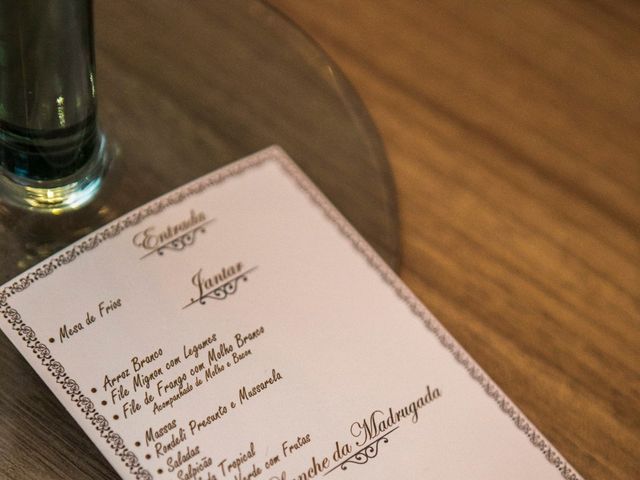 Entrada
Jantar
• Mesa de Frios
• Arroz Branco
• File Mignon com Legumes
• File de Frango com Molho Branco
Acompanhado de Molho e Bacon
• Massas
• Rondeli Presunto e Massarela
• Saladas
Salpicão
Tropical
Verde com Frutas
Lanche da Madrugada